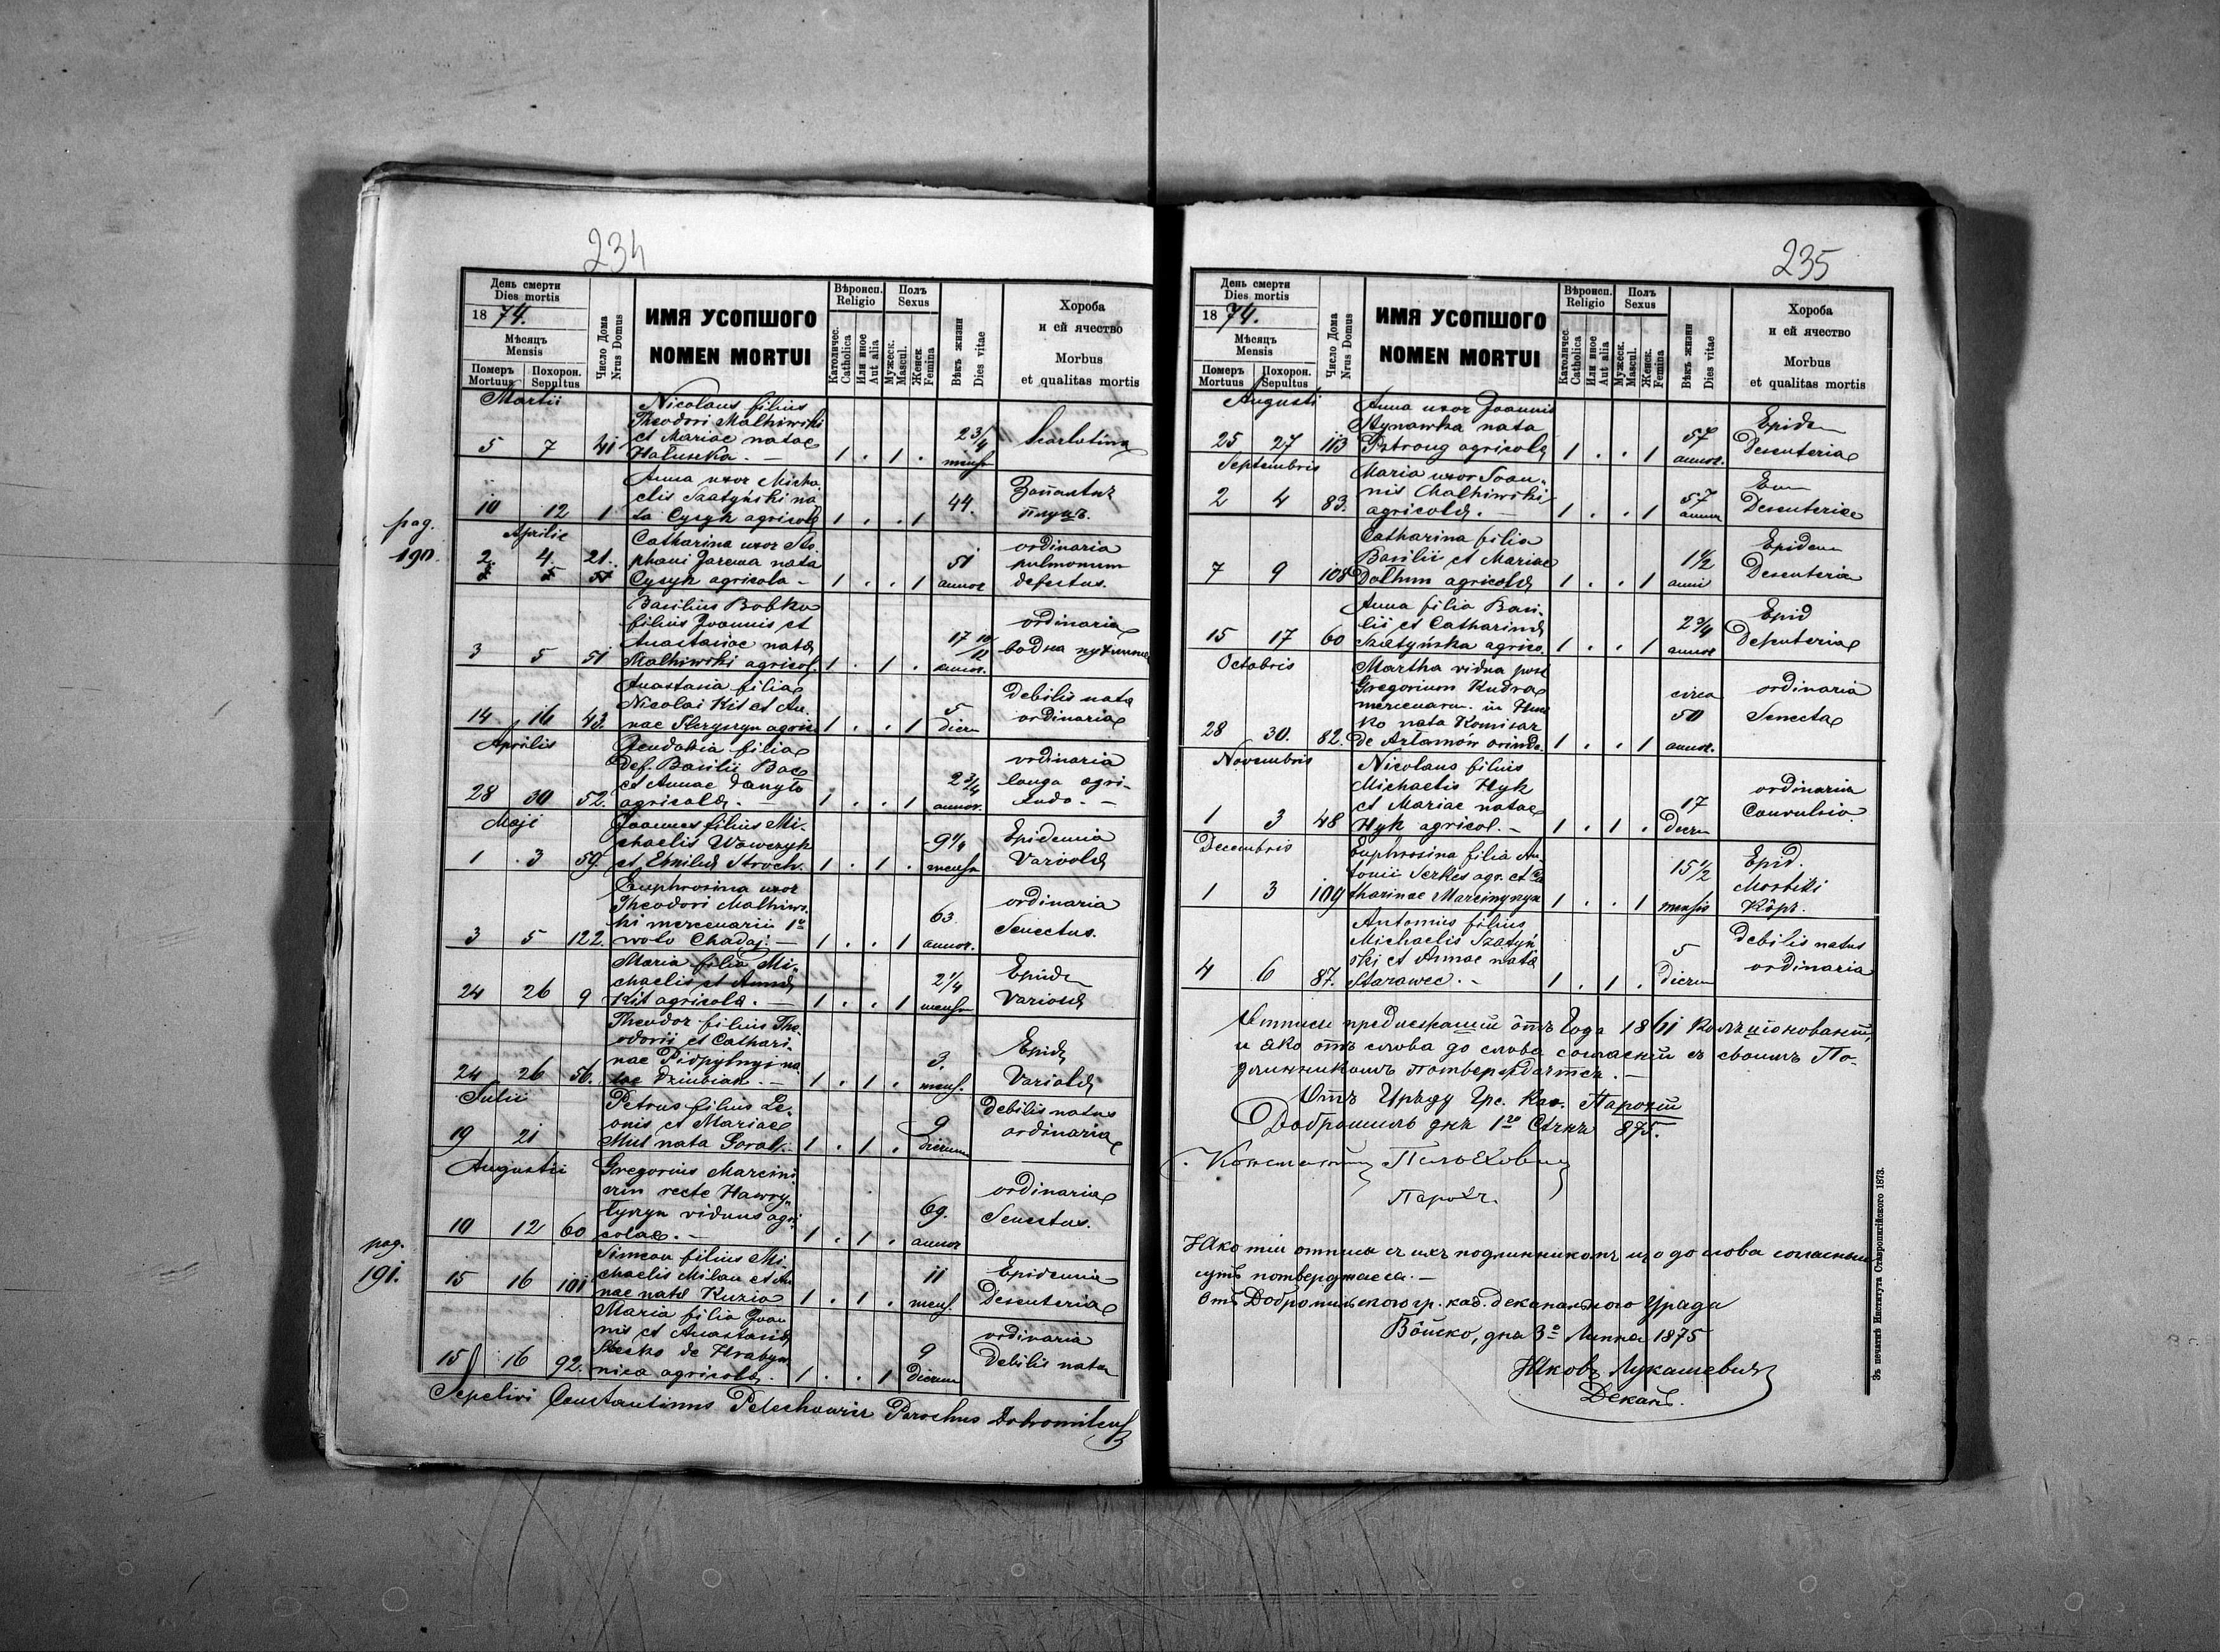 234
День смерти
Dies mortis
1874.
Мѣсяцъ
Mensis
Померъ
Mortuus
Похорон.
Sepultus
Число Дома
Nrus Domus
ИМЯ УСОПШОГО
NOMEN MORTUI
Вѣроисп.
Religio
Католичес.
Catholica
Или иное
Aut alia
Полъ
Sexus
Мужеск.
Mascul.
Женск.
Femina
Вѣкъ жизни
Dies vitae
Хороба
и ей ячество
Morbus
et qualitas mortis
Martii
Nicolaus filius
Theodori Malhiwski
et Mariae natae
Haluszka. —
5 7 41 1 . 1 . 2 3/4 mensr Scarlatina
Anna uxor Micha
elis Szatyński na
ta Cyzyk agricola
10 12 1 1 . . 1 44.
pag.
190.
Aprilis
Catharina uxor Ste
phani Jarema nata
Cyzyk agricola -
2. 4. 21. 1 . . 1 51 annor
ordinaria
pulmonum
defectus.
Basilius Bobko
filius Joannis et
Anastasiae nata
Malhiwski agricol.
3 5 51 1 . 1 . 17 10/12 annor.
ordinaria
Anastasia filia
Nicolai Kit et An.
nae agric
14 16 43. 1 . . 1 5 dieru
debilis nata
ordinaria
Aprilis
Eeudokia filia
def. Basilii Bac
et Annae Danyło
agricola. —
28 30 52. 1 . . 1 2 3/4 annor.
ordinaria
longa agri-
tudo. —
Maji
Joannes filius Mi-
chaelis Wawczyk
et Stroch.
1 3 59. 1 . 1 . 9 1/4 mensr
Epidemia
Variola
Euphrosina uxor
Theodori Malhiws
ki mercenarii 1o
wolo Chadaj. —
3 5 122. 1 . . 1 63 annor.
ordinaria
Senectus.
Maria filia Mi-
chaelis et Anna
Kit agricola. —
24 26 9 1 . . 1 2 1/4 mensr
Epid
Variola
Theodor filius The
odorii et Cathari-
nae Pidpyłnyj na
tae Dziubiak. —
24 26 56. 1 . 1 . 3. mens.
Epid
Variola
Julii
Petrus filius Le-
onis et Mariae
Mul nata Goral.
19 21 1 . 1 . 9 dierum
debilis natus
ordinaria
Augustii
Gregorius Marcini
recte Hawry-
viduus agri
colae. -
10 12 60 1 . 1 . 69. annor
ordinaria
Senectus.
pag.
191.
Simeon filius Mi-
chaelis Milan et An
nae nata Kuzio
15 16 101 1 . 1 . 11 mens.
Epidemia
Desenteria
Maria filia Joan
nis et Anastasia
de Hrabow
nica agricola.
15 16 92. 1 . . 1 9 dierum
ordinaria
debilis nata
Sepelivi Constantinus Pelechowicz Parochus Dobromilens
235
День смерти
Dies mortis
1874.
Мѣсяцъ
Mensis
Померъ
Mortuus
Похорон.
Sepultus
Число Дома
Nrus Domus
ИМЯ УСОПШОГО
NOMEN MORTUI
Вѣроисп.
Religio
Католичес.
Catholica
Или иное
Aut alia
Полъ
Sexus
Мужеск.
Mascul.
Женск.
Femina
Вѣкъ жизни
Dies vitae
Хороба
и ей ячество
Morbus
et qualitas mortis
Augusti
Anna uxor Joannis
Stynawka nata
Pstrong agricola
25 27 113 1 . . 1 57 annor.
Epide
Desenteria
Septembris
Maria uxor Joan-
nis Malhiwski
agricola. —
2 4 83. 1 . . 1 57 annor
Desenteriae
Catharina filia
Basilii et Mariae
agricola
7 9 108 1 . . 1 1 1/2 anni
Epidem
Desenteria
Anna filia Basi-
lii et Catharina
Szatyńska agrico.
15 17 60 1 . . 1 2 3/4 annor
Epid
Desenteria
Octobris
Martha vidua post
Gregorium Kudra
mercenaru. in
nata Komisar
de Artamów
28 30. 82. 1 . . 1 circa 50 annor.
ordinaria
Senecta
Novembris
Nicolaus filius
Michaelis Hyk
et Mariae natae
Hyk agricol. -
1 3 48 1 . 1 . 17 Dieru
ordinaria
Convulsio
Decembris
Euphrosina filia An-
tonii Serkes agr. et Ca
tharinae
1 3 109 1 . . 1 15 1/2 mensis
Epid.
Morbilli
Кôръ.
Antonius filius
Michaelis Szatyń
ski et Annae nata
Starawec. -
4 6 87. 1 . 1 . 5 Dieru
debilis natus
ordinaria
Отписи предлежащіи ôтъ Года 1861
и яко отъ слова до слова согласніи съ своимъ По-
длинникомъ потверждаются. —
Отъ Уряду Гр. Кат. Парохіи
Добромиль днѣ 1го Сѣчня 875.
Константин Пелехович
Парохъ.
Яко тіи отписи съ ихъ подлинникомъ що до слова согласныи
суть потверджаеся. —
Отъ Добромильского гр. кат. деканального Уряда
Вôйско, дня 3о Липня 1875
Яковъ Лукашевич
Деканъ.
Зъ печатнѣ Института Ставропигійского 1873.